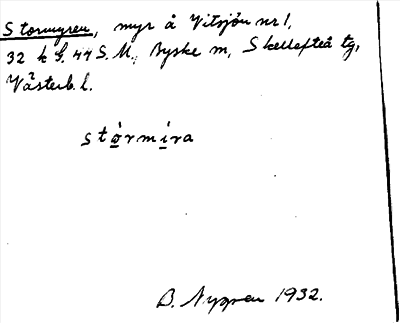 Stormyren, myr å Vitsjön nr 1,
32 k G. 44 S. M., Byske m, Skellefteå tg,
Västerb. l.
stòrmìra
B. Nygren 1932.